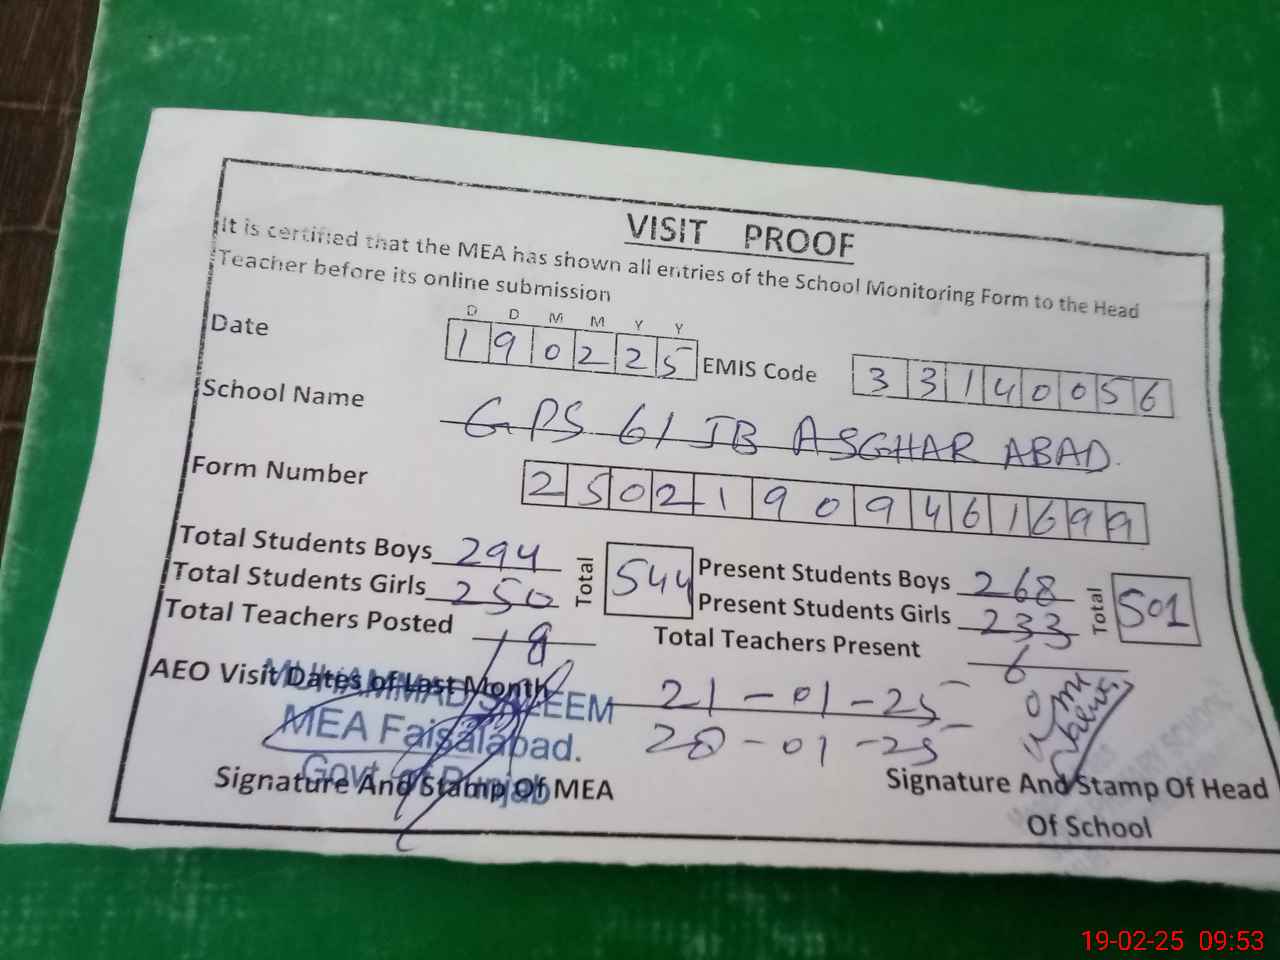 VISIT PROOF
It is certified that the MEA has shown all entries of the School Monitoring Form to the Head
Teacher before its online submission
D D M M Y Y
Date 190225 EMIS Code 33140056
School Name GPS 61 JB ASGHAR ABAD.
Form Number 25021909461699
Total Students Boys 294 Total 544 Present Students Boys 268 Total 501
Total Students Girls 250 Present Students Girls 233
Total Teachers Posted 8 Total Teachers Present 6
AEO Visit Dates of Last Month 21-01-25
28-01-25
MUHAMMAD SALEEM
MEA Faisalabad.
Govt of Punjab
Signature And Stamp Of MEA
Signature And Stamp Of Head
Of School
19-02-25 09:53